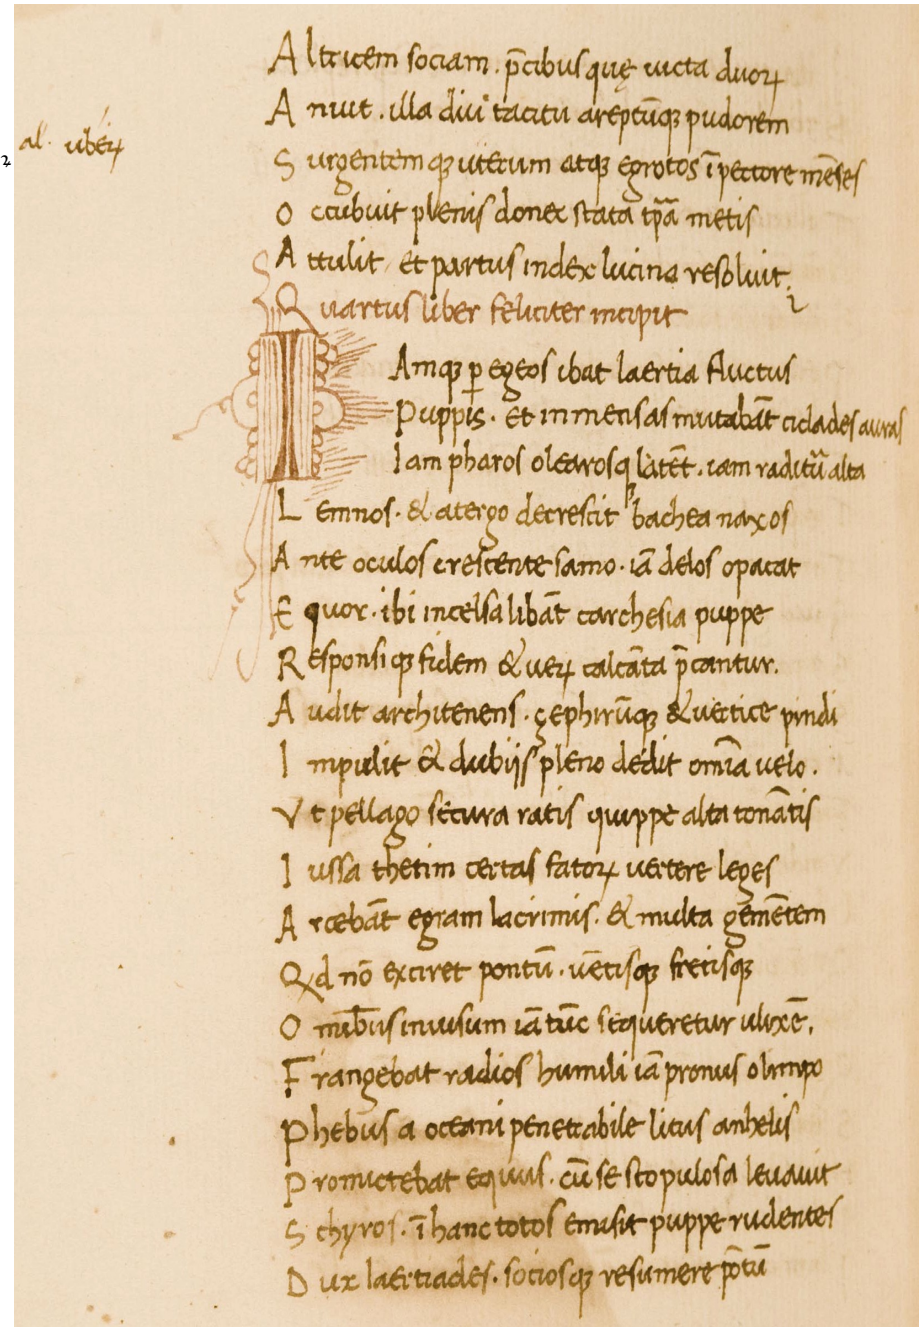 Altricem sociam. p̄cibusquę uicta duoꝝ
Annuit. illa diu tacitū areptūqꝫ pudorem
al. ubeꝝ
Surgentemqꝫ uterum atqꝫ egrotos ī pectore mēses
Occubuit plenis donec stata tp̄a metis
Attulit et partus index lucina resoluit.
Quartus liber feliciter incipit
IAmqꝫ ꝑ egeos ibat laertia fluctus
Puppis. Et inmensas mutabāt ciclades auras
Iam pharos olearosqꝫ latēt. iam raditū alta
Lemnos. & atergo decrescit bachea naxos
Ante oculos crescente samo. iā delos opacat
Equor. ibi incelsa libāt carchesia puppe
Responsiqꝫ fidem & ueꝝ calcāta p̄cantur.
Audit architenens. çephirūqꝫ & uertice pindi
Impulit & dubijs pleno dedit omīa uelo.
Vt pellago secura ratis quippe alta tonātis
Iussa thetim certas fatoꝝ uertere leges
Arcebāt egram lacrimis. & multa gemētem
Qd nō exciret pontū. uētisqꝫ fretisqꝫ
Omībus inuisum iā tūc sequeretur ulixē.
Frangebat radios humili iā pronus olimpo
Phebus a oceani penetrabile litus anhelis
Promictebat equis. cū se scopulosa leuauit
Schyros. ī hanc totos emisit puppe rudentes
Dux laertiades. sociosqꝫ resumere pōtū